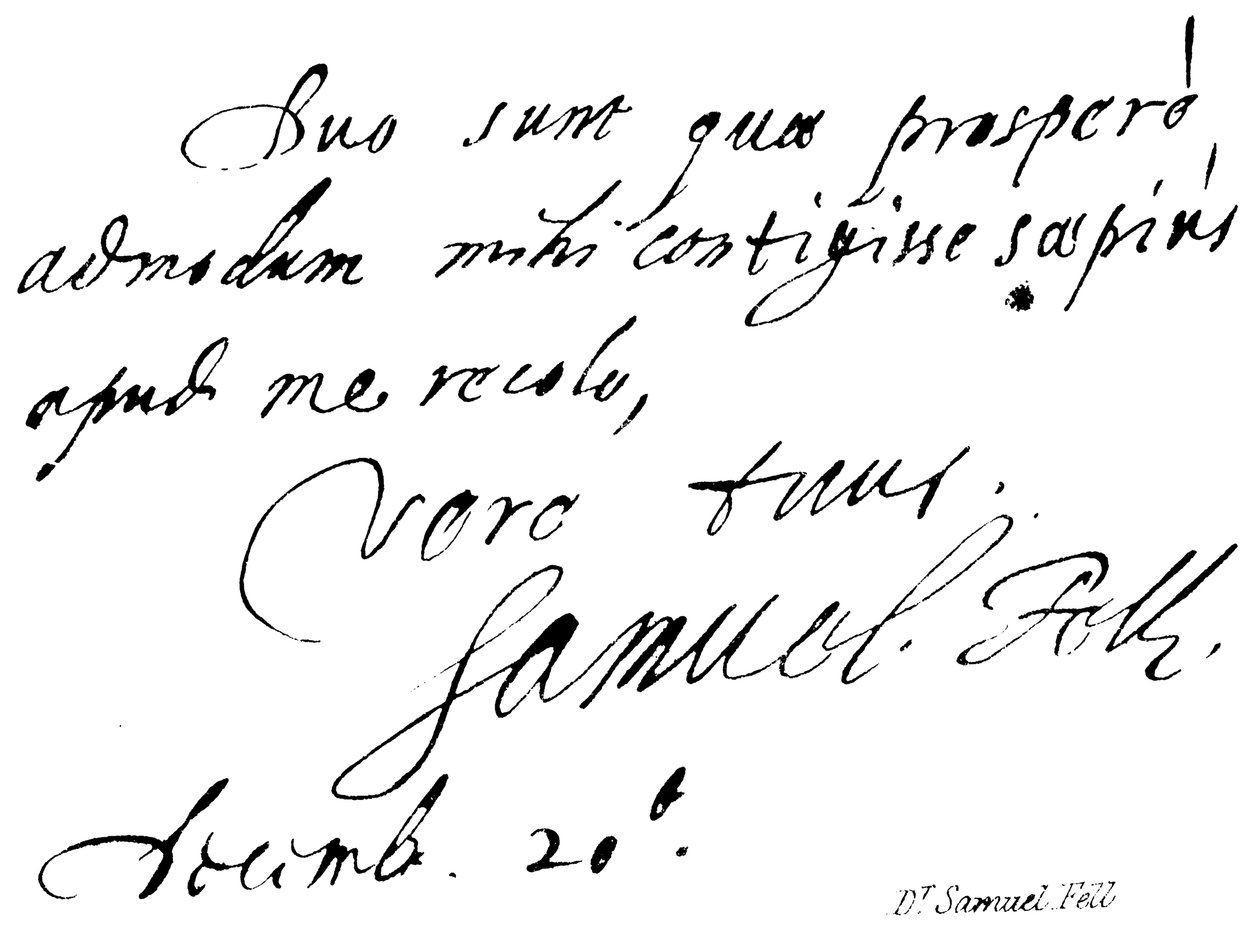 Duo sunt quæ prosperè
admodum mihi contigisse sæpiùs
apud me recolo,
Vere tuus.
Samuel. Fell.
Decemb. 20º.
Dr Samuel Fell